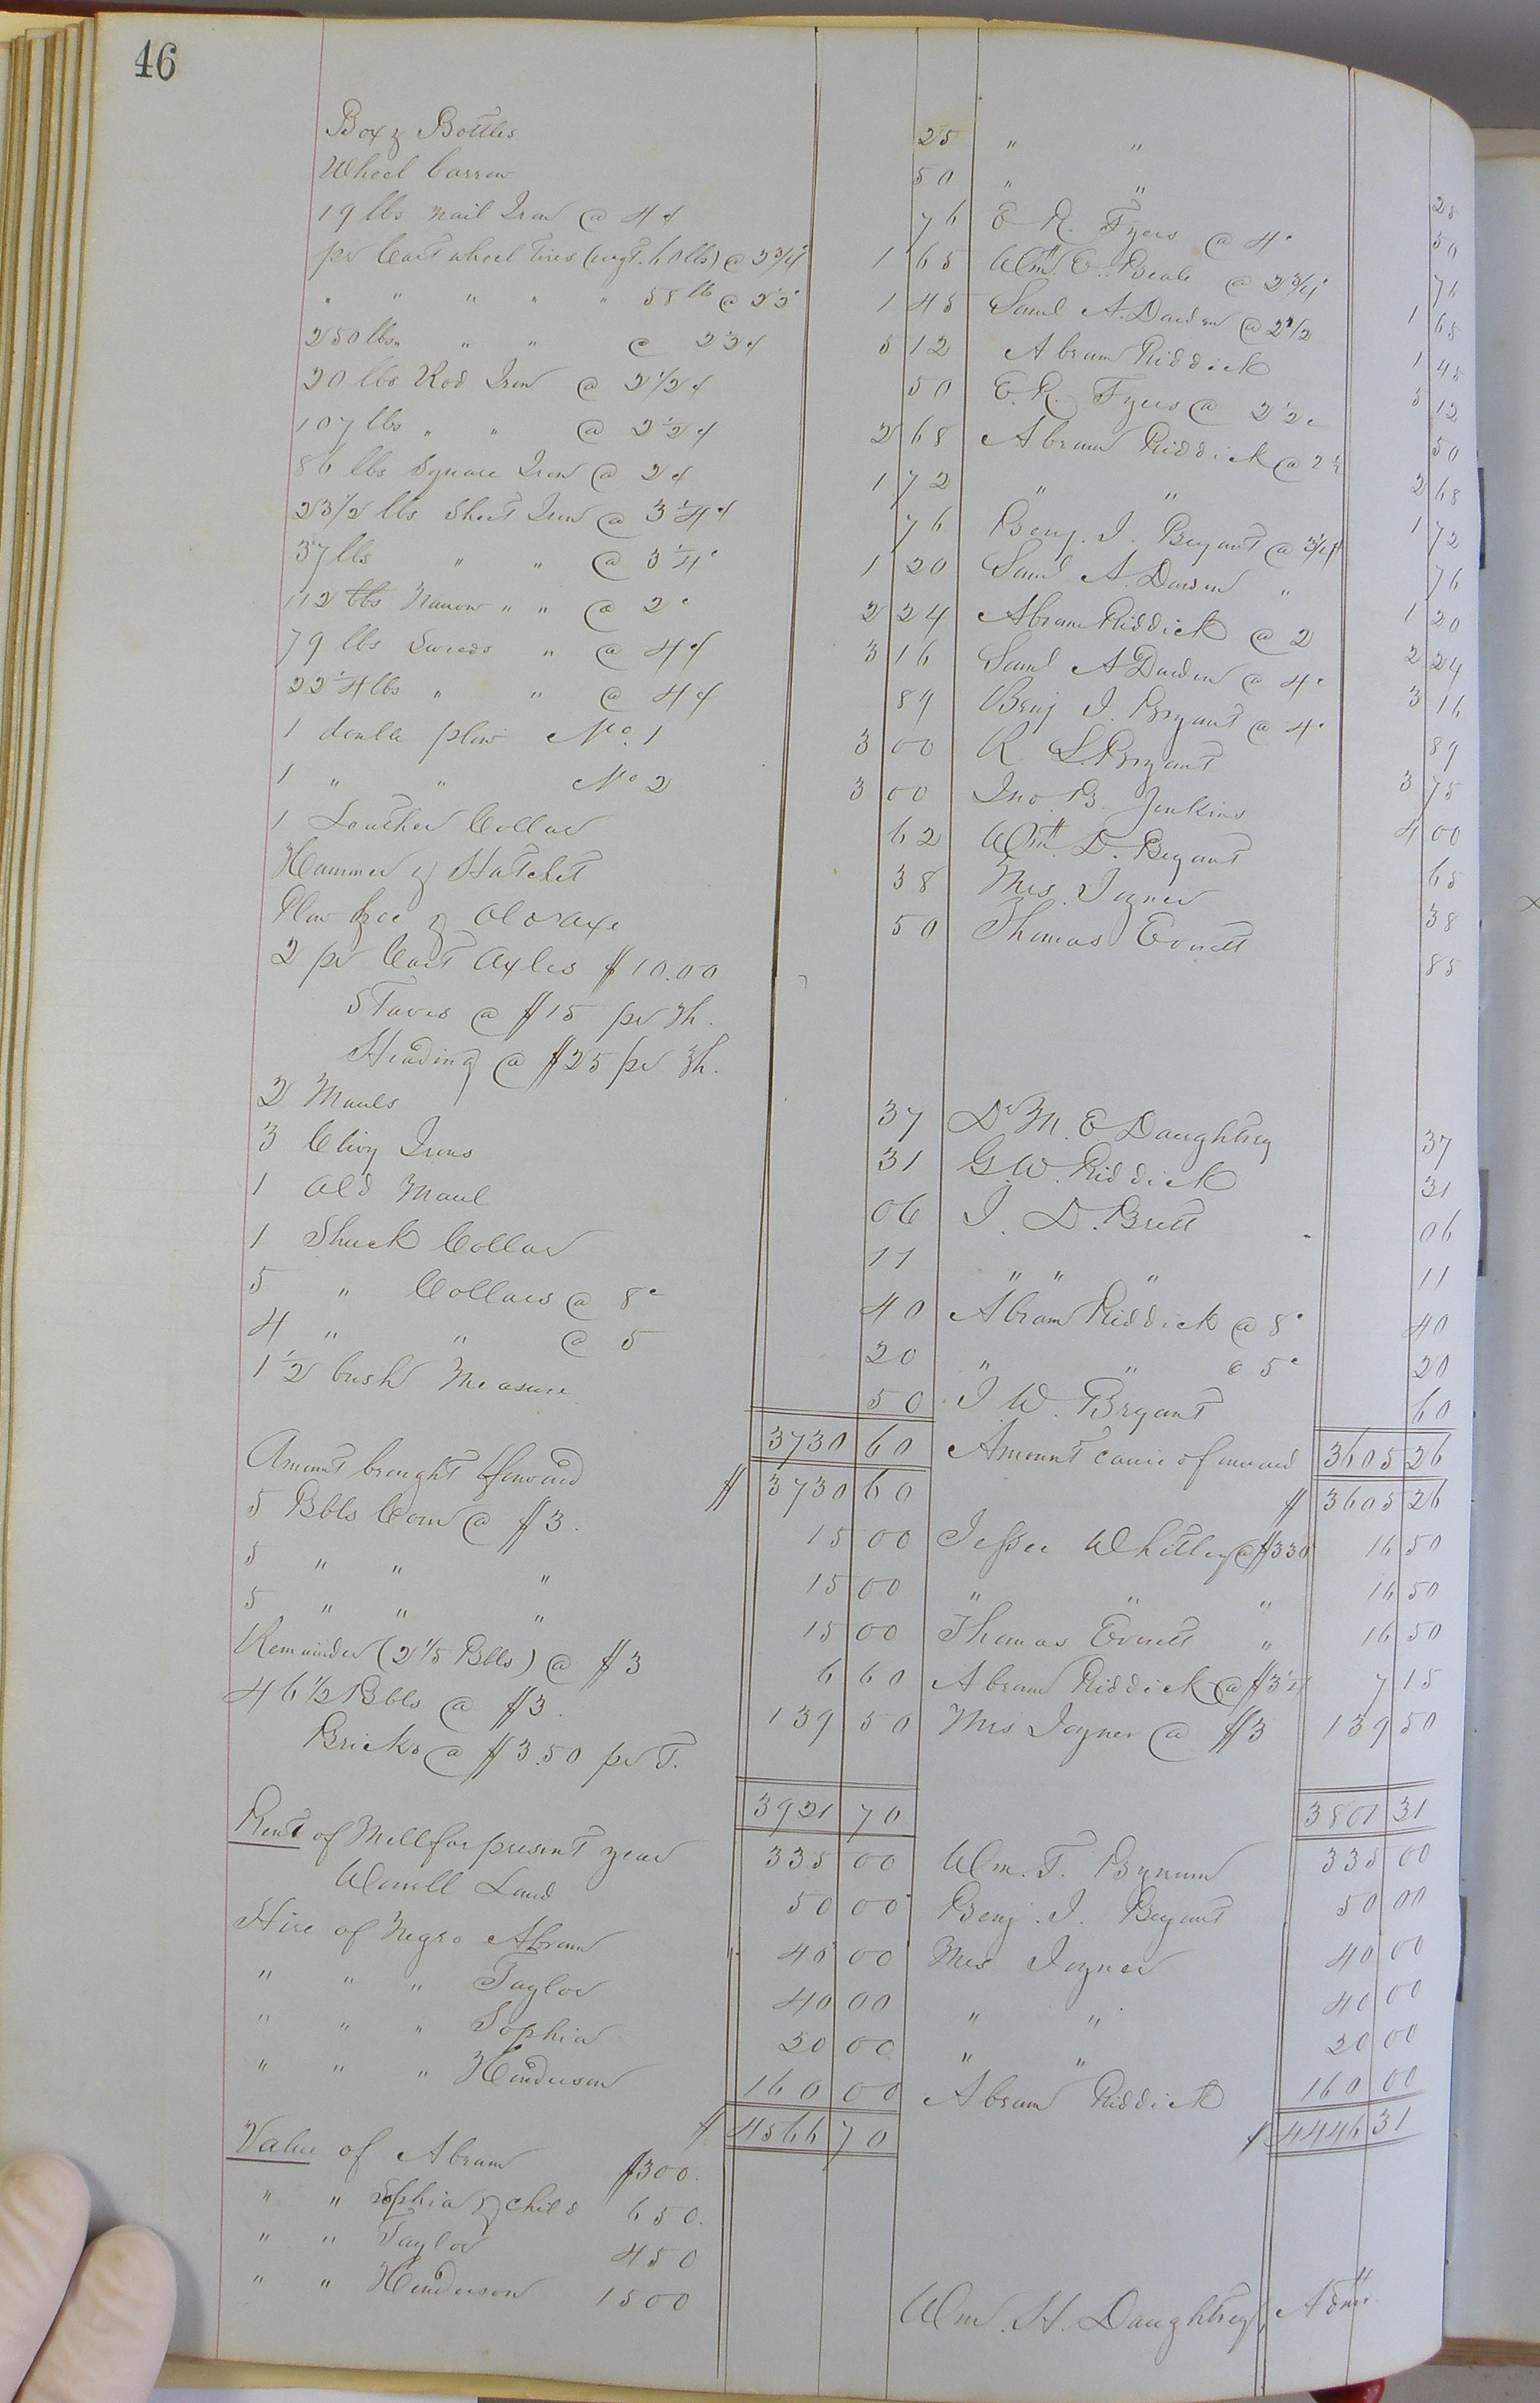 46
Box & Bottles 25 " "
Wheel barrow 50 " " 25
19 lbs nail Iron @ 4¢ 76 E. R. Tyers @ 4c 50
pr Cart wheel tires (wegt. 60 lbs) @ 2 3/4¢ 1 65 Wm. E. Beale @ 2 3/4c 76
" " " " " 58 lb @ 2 1/2c 1 45 Saml A. Darden @ 2 1/2 1 65
250 lbs " " " @ 2 1/2¢ 5 12 Abram Riddick 1 45
20 lbs Rod Iron @ 2 1/2¢ 50 E. R. Tyers @ 2 1/2c 5 12
107 lbs " " @ 2 1/2¢ 2 68 Abram Riddick @ 2 1/2 50
86 lbs Square Iron @ 2¢ 1 72 " " 2 68
23 1/2 lbs Sheet Iron @ 3 1/4¢ 76 Benj. J. Bryant @ 3 1/4¢ 1 72
37 lbs " " @ 3 1/4c 1 20 Saml A. Darden " 76
112 lbs Narrow " " @ 2c 2 24 Abram Riddick @ 2 1 20
79 lbs Sweeds " @ 4¢ 3 16 Saml A Darden @ 4c 2 24
22 1/4 lbs " " @ 4¢ 89 Benj J. Bryant @ 4c 3 16
1 double plow No. 1 3 00 R. S. Bryant 89
1 " " No 2 3 00 Jno. B. Jenkins 3 75
1 Leather Collar 62 Wm. D. Bryant 4 00
Hammer & Hatchet 38 Mrs. Joyner 65
Plow hoe & Old axe 50 Thomas Everett 38
2 pr Cart Axles $10.00 85
Staves @ $15 pr Th.
Heading @ $25 pr Th.
2 Mauls 37 Dr M. E Daughtrey 37
3 Clivy Irons 31 G. W. Riddick 31
1 Old Maul 06 J. D. Brett 06
1 Shuck Collar 11 " " " 11
5 " Collars @ 8c 40 Abram Riddick @ 8c 40
4 " " @ 5 20 " " @ 5c 20
1 1/2 bush Measure 50 J W. Bryant 60
3730 60 Amount carried forward 3605 26
Amount brought forward $ 3730 60 $ 3605 26
5 Bbls Corn @ $3. 15 00 Jesse Whitley @ $330 16 50
5 " " " 15 00 " " " 16 50
5 " " " 15 00 Thomas Everett " 16 50
Remainder (2 1/5 Bbls) @ $3 6 60 Abram Riddick @ $3 1/4 7 15
46 1/2 Bbls @ $3. 139 50 Mrs Joyner @ $3 139 50
Bricks @ $3.50 pr T.
3921 70 3801 31
Rent of Mill for present year 335 00 Wm. T. Bynum 335 00
Worrell Land 50 00 Benj. J. Bryant 50 00
Hire of Negro Abram 40 00 Mrs Joyner 40 00
" " " Taylor 40 00 " " 40 00
" " " Sophia 20 00 " " 20 00
" " " Henderson 160 00 Abram Riddick 160 00
$ 4566 70 $ 4446 31
Value of Abram $300.
" " Sophia & child 650.
" " Taylor 450
" " Henderson 1500
Wm. H. Daughtrey, Admr.